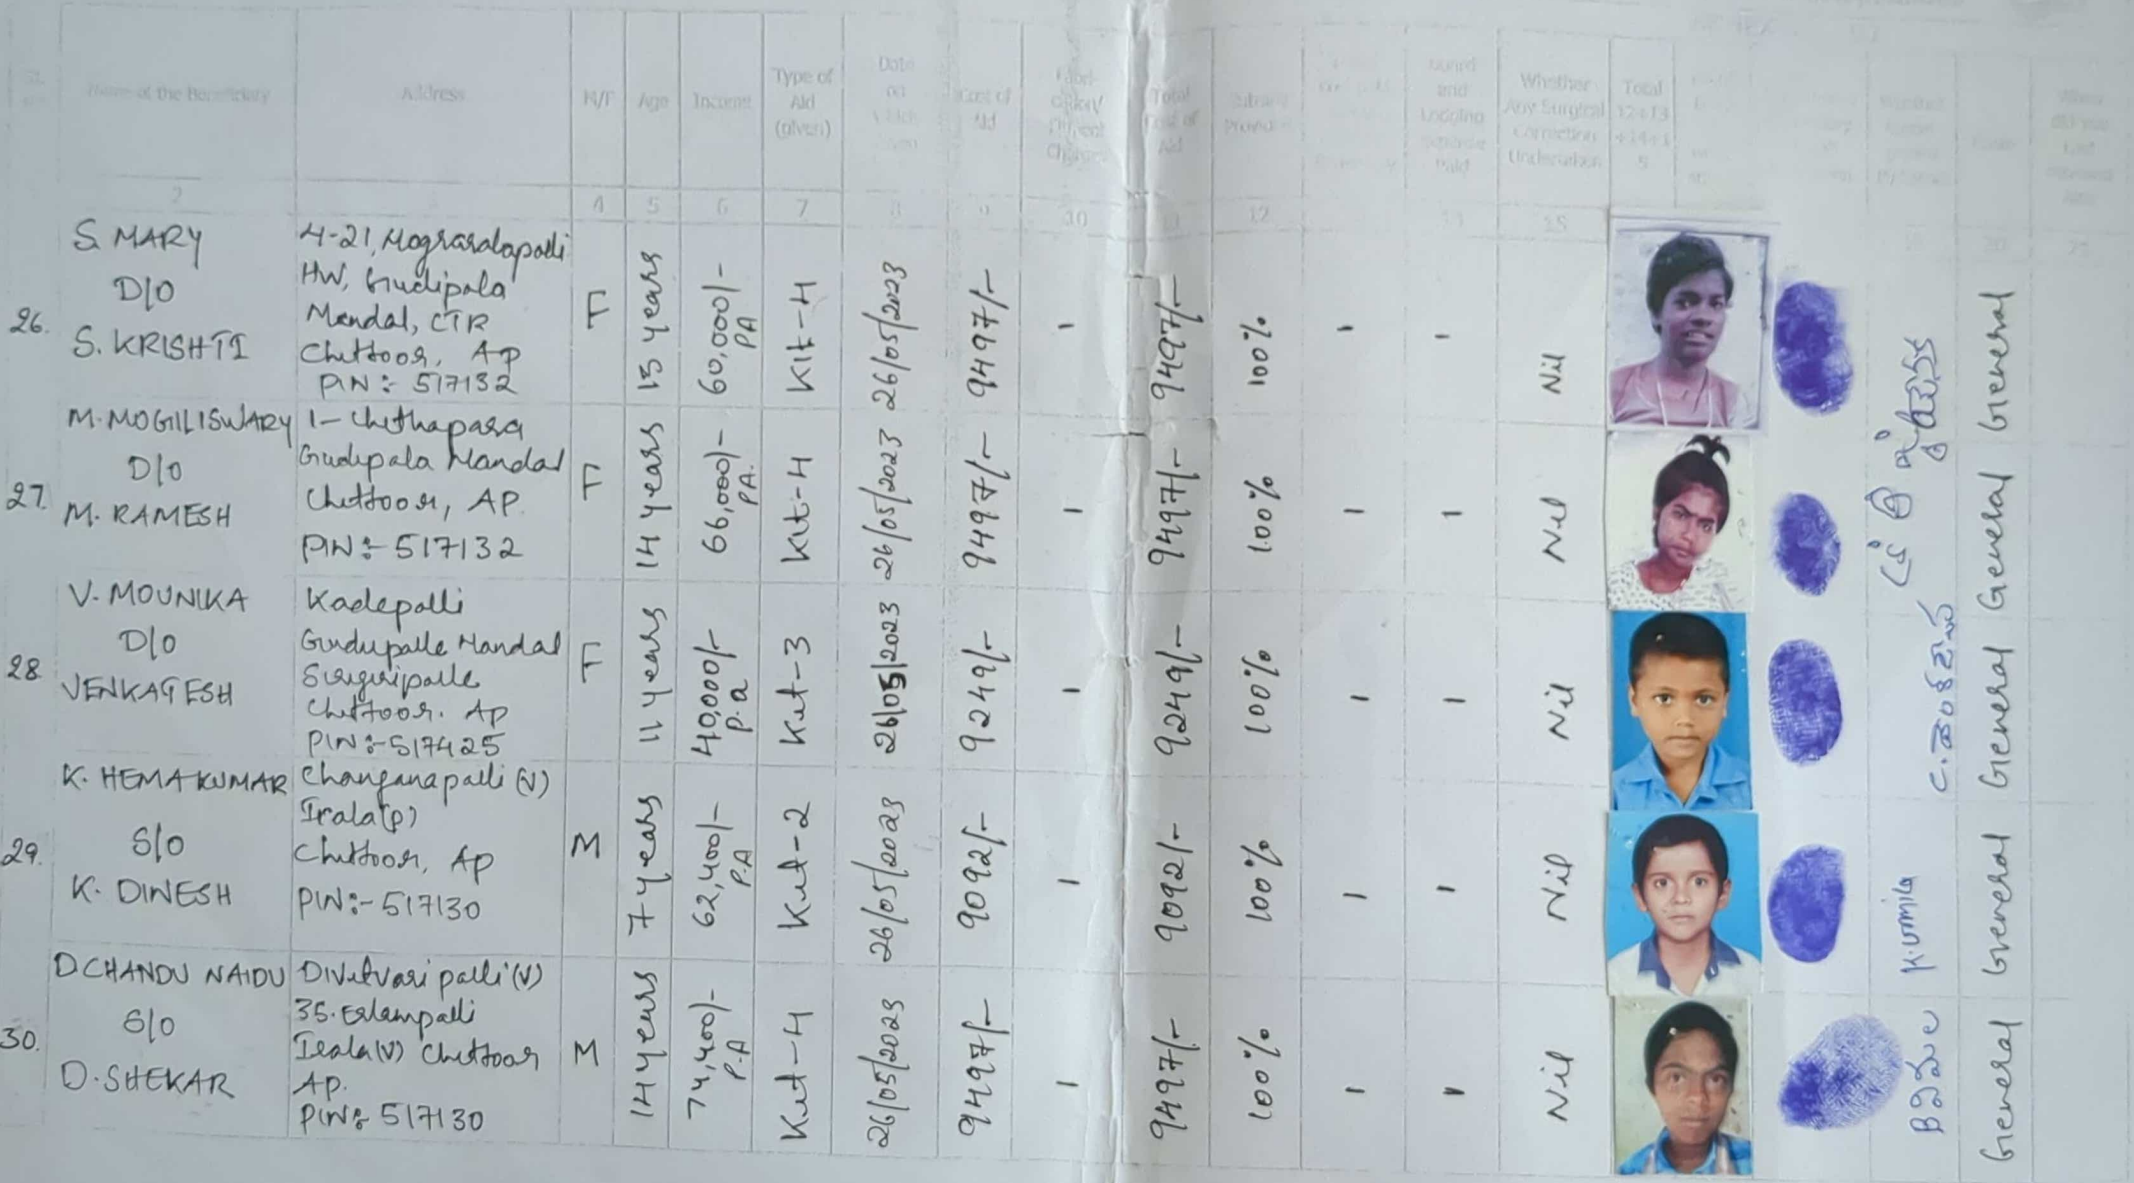 Name of the Beneficiary
Address
M/F
Age
Income
Type of
Aid
(given)
Date
on
which
given
Cost of
Aid
Total
Cost of
Aid
Subsidy
Provided
Board
and
Lodging
expense
Paid
Whether
Any Surgical
Correction
Undertaken
Total
12+13
+14+1
5
2 4 5 6 7 8 9 10 11 12 15
26.
S. MARY
D/O
S. KRISHTI
4-21,
HW, Gudipala
Mandal, CTR
Chittoor, AP
PIN:- 517132
F
15 years
60,000/-
PA
Kit-4
26/05/2023
9497/-
-
9497/-
100%
-
-
Nil
General
27.
M. MOGILISWARY
D/O
M. RAMESH
1- Chithapara
Gudipala Mandal
Chittoor, AP.
PIN:- 517132
F
14 years
66,000/-
PA.
Kit-4
26/05/2023
9497/-
-
9497/-
100%
-
-
Nil
General
28
V. MOUNIKA
D/O
VENKATESH
Kadepalli
Gudupalle Mandal
Chittoor. AP
PIN:-517425
F
11 years
40,000/-
P.a
Kit-3
26/05/2023
9249/-
-
9249/-
100%
-
-
Nil
General
29.
K. HEMA KUMAR
S/O
K. DINESH
Changanapalli (V)
Irala(P)
Chittoor, AP
PIN:- 517130
M
7 years
62,400/-
P.A
Kit-2
26/05/2023
9092/-
-
9092/-
100%
-
-
Nil
General
30.
D CHANDU NAIDU
S/O
D. SHEKAR
Divitvari palli (V)
35. Erlampalli
Irala(V) Chittoor
AP.
PIN: 517130
M
14 years
74,400/-
P.A
Kit-4
26/05/2023
9497/-
-
9497/-
100%
-
-
Nil
General